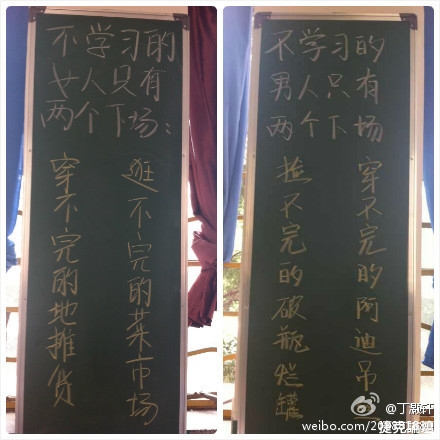 不学习的
女人只有
两个下场：
逛不完的菜市场
穿不完的地摊货
不学习的
男人只有
两个下场
穿不完的阿迪吊
捡不完的破瓶烂罐
weibo.com/